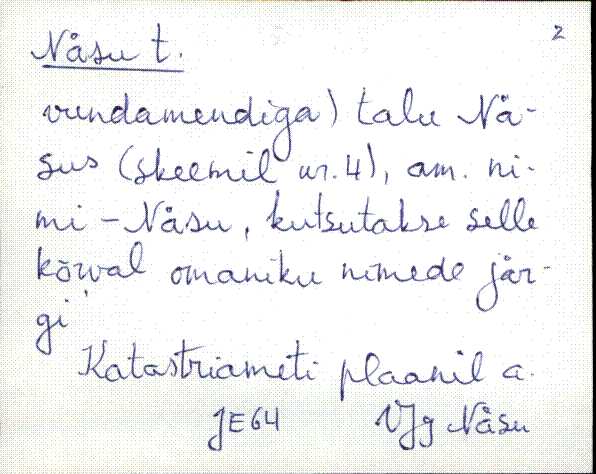 Näsu t.
2
vundamendiga) talu Nä-
sus (skeemil nr. 4), am. ni-
mi - Näsu, kutsutakse selle
kõrval omaniku nimede jär-
gi
Katastriameti plaanil a.
JE64 VJg Näsu